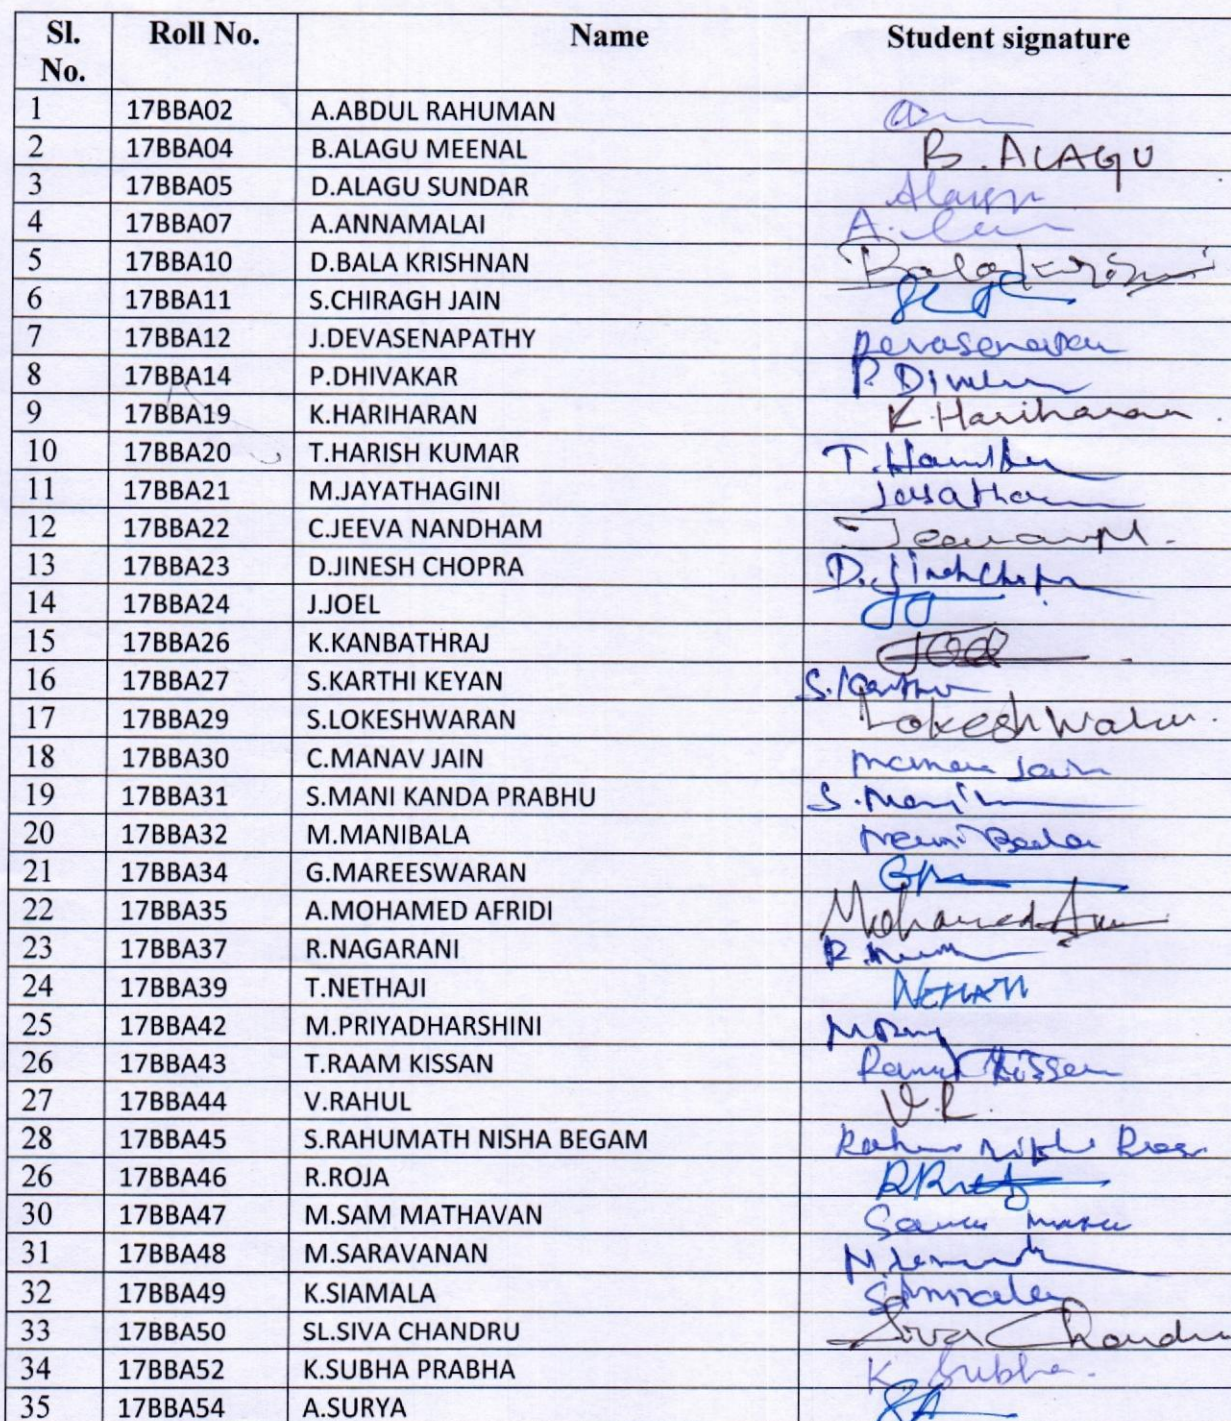 Sl. No. Roll No. Name Student signature
1 17BBA02 A.ABDUL RAHUMAN
2 17BBA04 B.ALAGU MEENAL B. ALAGU
3 17BBA05 D.ALAGU SUNDAR
4 17BBA07 A.ANNAMALAI
5 17BBA10 D.BALA KRISHNAN
6 17BBA11 S.CHIRAGH JAIN
7 17BBA12 J.DEVASENAPATHY
8 17BBA14 P.DHIVAKAR
9 17BBA19 K.HARIHARAN K.Hariharan
10 17BBA20 T.HARISH KUMAR
11 17BBA21 M.JAYATHAGINI
12 17BBA22 C.JEEVA NANDHAM
13 17BBA23 D.JINESH CHOPRA
14 17BBA24 J.JOEL
15 17BBA26 K.KANBATHRAJ
16 17BBA27 S.KARTHI KEYAN
17 17BBA29 S.LOKESHWARAN
18 17BBA30 C.MANAV JAIN
19 17BBA31 S.MANI KANDA PRABHU
20 17BBA32 M.MANIBALA
21 17BBA34 G.MAREESWARAN
22 17BBA35 A.MOHAMED AFRIDI Mohamed
23 17BBA37 R.NAGARANI
24 17BBA39 T.NETHAJI
25 17BBA42 M.PRIYADHARSHINI
26 17BBA43 T.RAAM KISSAN
27 17BBA44 V.RAHUL V.R.
28 17BBA45 S.RAHUMATH NISHA BEGAM
26 17BBA46 R.ROJA
30 17BBA47 M.SAM MATHAVAN
31 17BBA48 M.SARAVANAN
32 17BBA49 K.SIAMALA
33 17BBA50 SL.SIVA CHANDRU Siva Chandru
34 17BBA52 K.SUBHA PRABHA K. Subha.
35 17BBA54 A.SURYA